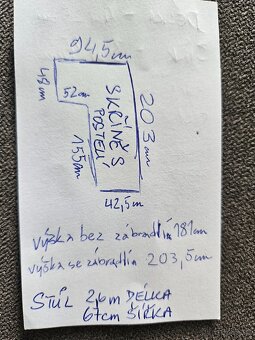 94,5cm
48cm
52cm
SKŘÍNĚ S
POSTELÍ
203cm
155cm
42,5cm
výška bez zábradlí 181cm
výška se zábradlím 203,5cm
STŮL 2,6m DÉLKA
67cm ŠÍŘKA